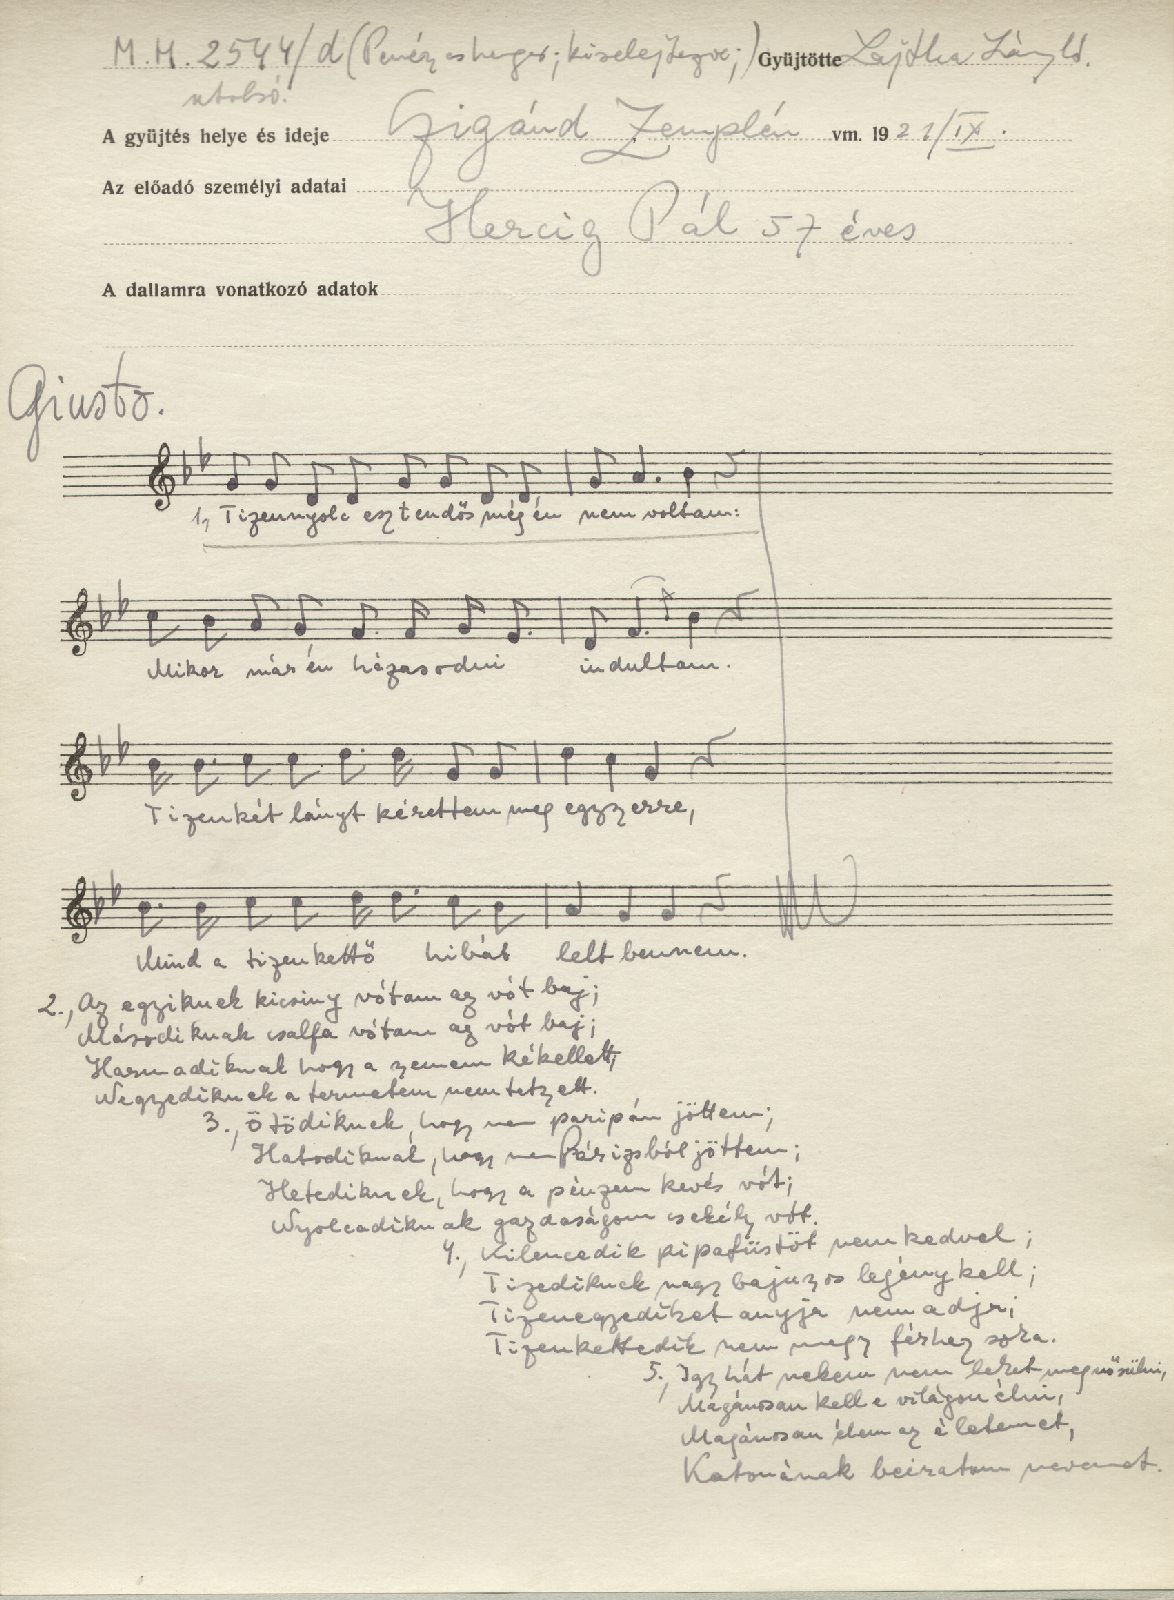 M.H. 2544/d (Penészes henger; kiselejtezve;) Gyüjtötte Lajtha László.
utolsó.
A gyüjtés helye és ideje Czigánd Zemplén vm. 1921/IX.
Az előadó személyi adatai
Herczig Pál 57 éves
A dallamra vonatkozó adatok
Giusto.
1, Tizennyolc esztendős még én nem voltam:
Mikor már én házasodni indultam.
Tizenkét lányt kérettem meg egyzerre,
Mind a tizenkettő hibát lelt bennem.
2., Az egyiknek kicsiny vótam az vót baj;
Másodiknak csalfa vótam az vót baj;
Harmadiknak hogy a zemem kékellett;
Negyediknek a termetem nem tetzett.
3., Ötödiknek, hogy nem paripán jöttem;
Hatodiknak, hogy nem Párizsból jöttem;
Hetediknek, hogy a pénzem kevés vót;
Nyolcadiknak gazdaságom csekély vót.
4., Kilencedik pipafüstöt nem kedvel;
Tizediknek nagy bajuzos legény kell;
Tizenegyediket anyja nem adja;
Tizenkettedik nem megy férhez soha.
5., Igy hát nekem nem lehet megnősülni,
Magánosan kell e világon élni,
Magánosan élem az életemet,
Katonának beiratom nevemet.